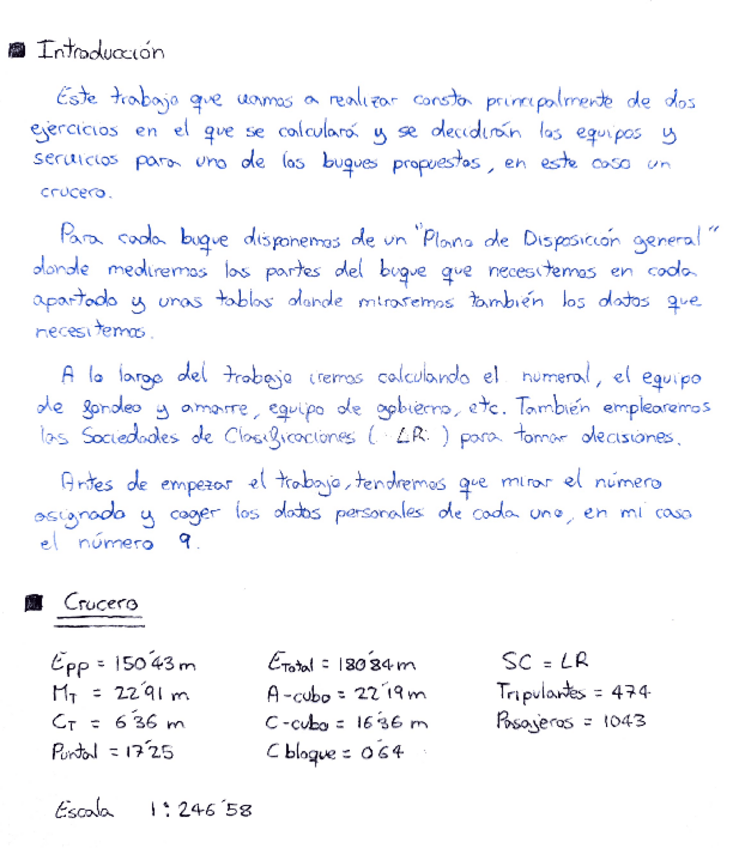 Introducción
Este trabajo que vamos a realizar consta principalmente de dos
ejercicios en el que se calculará y se decidirán los equipos y
servicios para uno de los buques propuestos, en este caso un
crucero.
Para cada buque disponemos de un "Plano de Disposición general"
donde mediremos las partes del buque que necesitemos en cada
apartado y unas tablas donde miraremos también los datos que
necesitemos.
A lo largo del trabajo iremos calculando el numeral, el equipo
de fondeo y amarre, equipo de gobierno, etc. También emplearemos
las Sociedades de Clasificaciones ( LR ) para tomar decisiones.
Antes de empezar el trabajo, tendremos que mirar el número
asignado y coger los datos personales de cada uno, en mi caso
el número 9.
Crucero
Epp = 150'43 m ETotal = 180'84 m SC = LR
MT = 22'91 m A-cubo = 22'19 m Tripulantes = 474
CT = 6'36 m C-cubo = 16'36 m Pasajeros = 1043
Puntal = 17'25 C bloque = 0'64
Escala 1:246'58